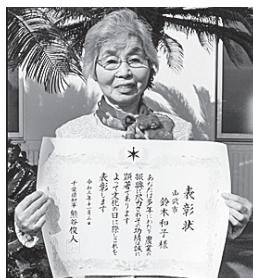 表彰状
山武市
鈴木和子様
あなたは多年にわたり農業の
振興に尽力されその功績は誠に
顕著であります
よって文化の日に際しこれを
表彰します
令和三年十一月三日
千葉県知事 熊谷俊人